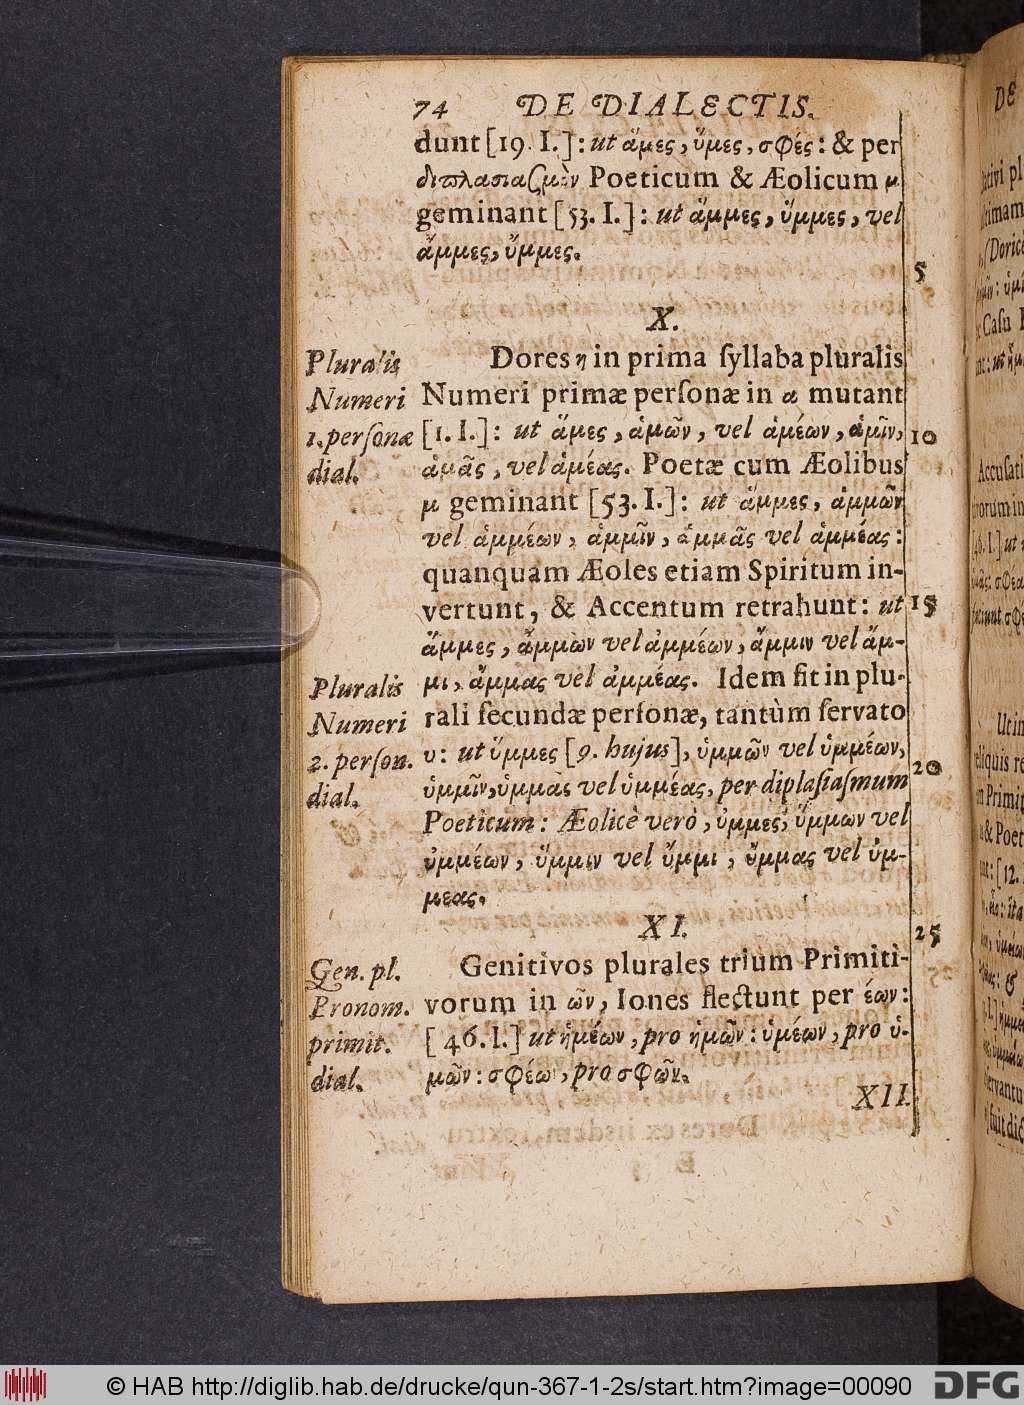 74 DE DIALECTIS.
dunt [19. I.]: ut ἅμες, ὕμες, σφές: & per
διπλασιασμὸν Poeticum & Æolicum μ
geminant [53. I.]: ut ἅμμες, ὕμμες, vel
ἄμμες, ὔμμες.
5
X.
Pluralis
Numeri
1. perſonæ
dial.
Dores η in prima ſyllaba pluralis
Numeri primæ perſonæ in α mutant
[1. I.]: ut ἅμες, ἁμῶν, vel ἁμέων, ἁμῖν,
10
ἁμᾶς, vel ἁμέας. Poetæ cum Æolibus
μ geminant [53. I.]: ut ἅμμες, ἁμμῶν
vel ἁμμέων, ἁμμῖν, ἁμμᾶς vel ἁμμέας:
quanquam Æoles etiam Spiritum in-
vertunt, & Accentum retrahunt: ut
15
ἄμμες, ἄμμων vel ἀμμέων, ἄμμιν vel ἄμ-
μι, ἄμμας vel ἀμμέας. Idem fit in plu-
Pluralis
Numeri
2. perſon.
dial.
rali ſecundæ perſonæ, tantùm ſervato
υ: ut ὕμμες [9. hujus], ὑμμῶν vel ὑμμέων,
20
ὑμμῖν, ὑμμᾶς vel ὑμμέας, per diplaſiaſmum
Poeticum: Æolicè verò, ὔμμες, ὔμμων vel
ὐμμέων, ὔμμιν vel ὔμμι, ὔμμας vel ὐμ-
μεας.
XI.
25
Gen. pl.
Pronom.
primit.
dial.
Genitivos plurales trium Primiti-
vorum in ῶν, Iones flectunt per έων:
[46. I.] ut ἡμέων, pro ἡμῶν: ὑμέων, pro ὑ-
μῶν: σφέων, pro σφῶν.
XII.
© HAB http://diglib.hab.de/drucke/qun-367-1-2s/start.htm?image=00090
DFG